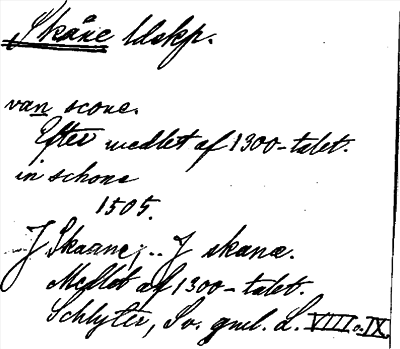 Skåne ldskp.
van scone.
Efter medlet af 1300-talet.
in schone
1505.
J Skaane; .. J skanæ.
Medlet af 1300-talet.
Schlyter, Sv. gml. L. VIII o. IX.